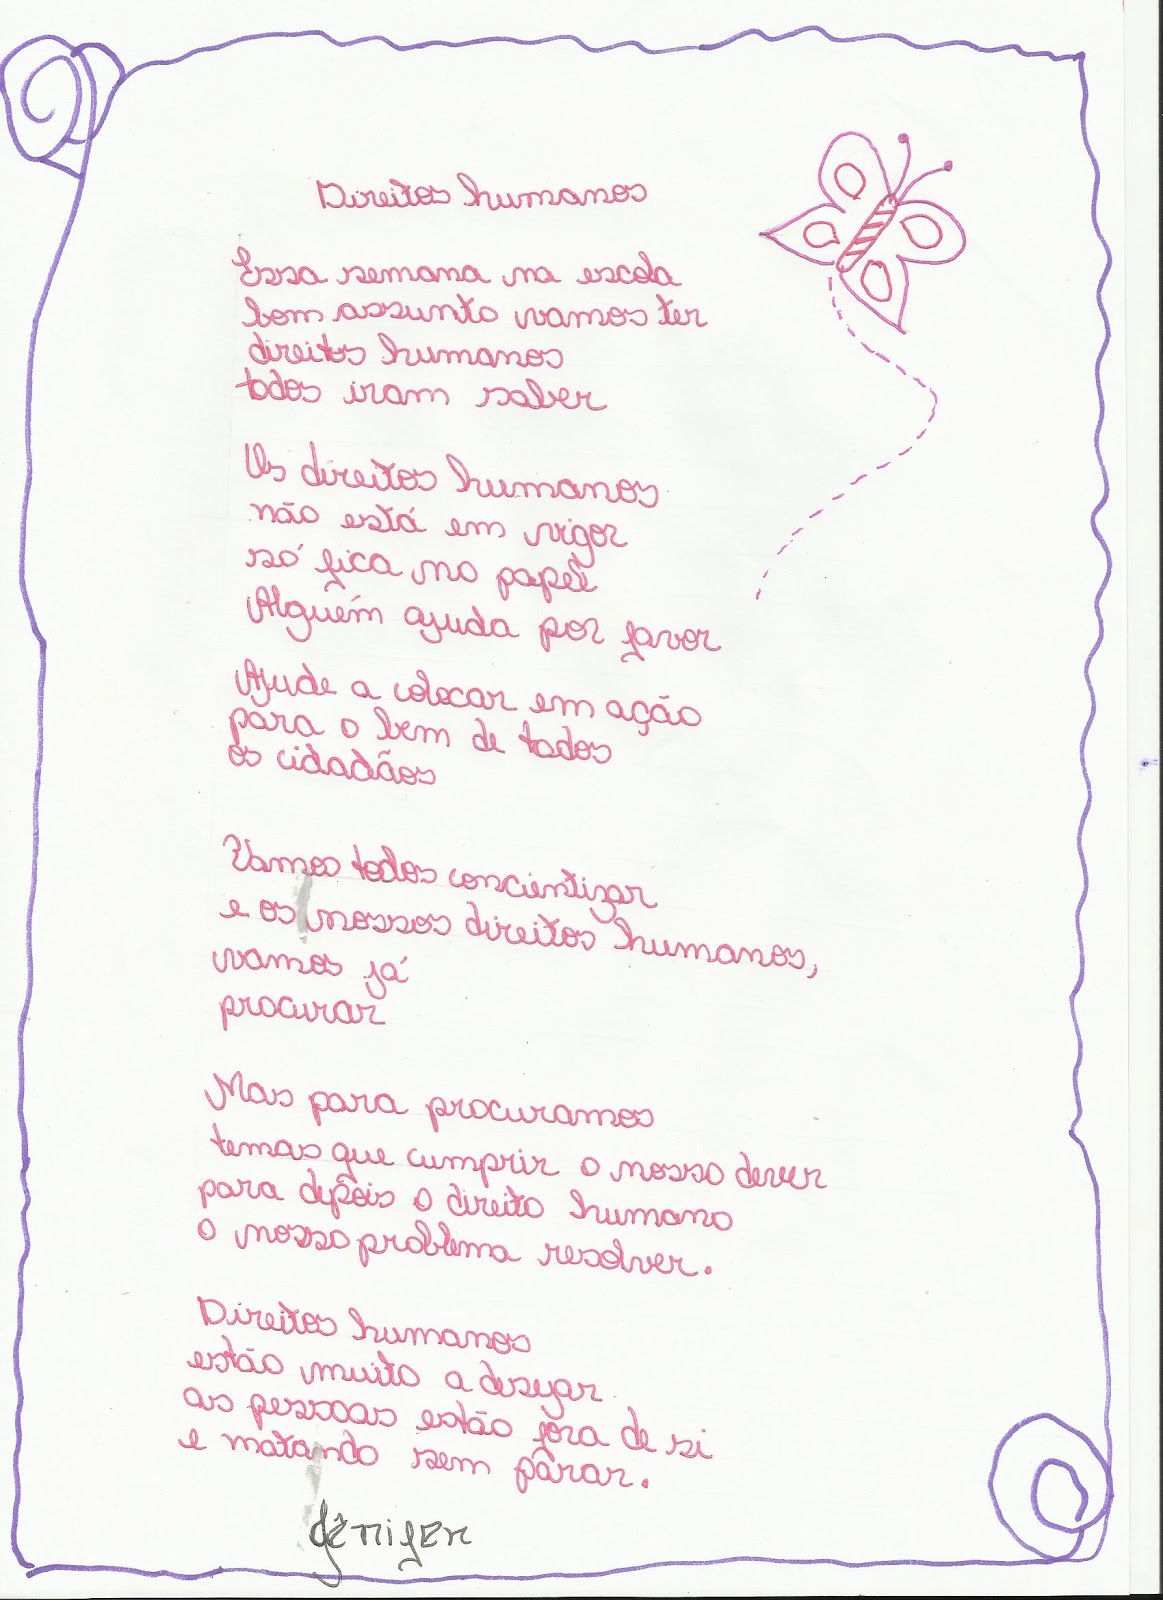 Direitos humanos
Essa semana na escola
bom assunto vamos ter
direitos humanos
todos iram saber
Os direitos humanos
não está em vigor
só fica no papel
Alguém ajuda por favor
Ajude a colocar em ação
para o bem de todos
os cidadãos
Vamos todos concientizar
e os nossos direitos humanos,
vamos já
procurar
Mas para procuramos
temas que cumprir o nosso dever
para depois o direito humano
o nosso problema resolver.
Direitos humanos
estão muito a desejar
as pessoas estão fora de si
e matando sem parar.
Jênifer